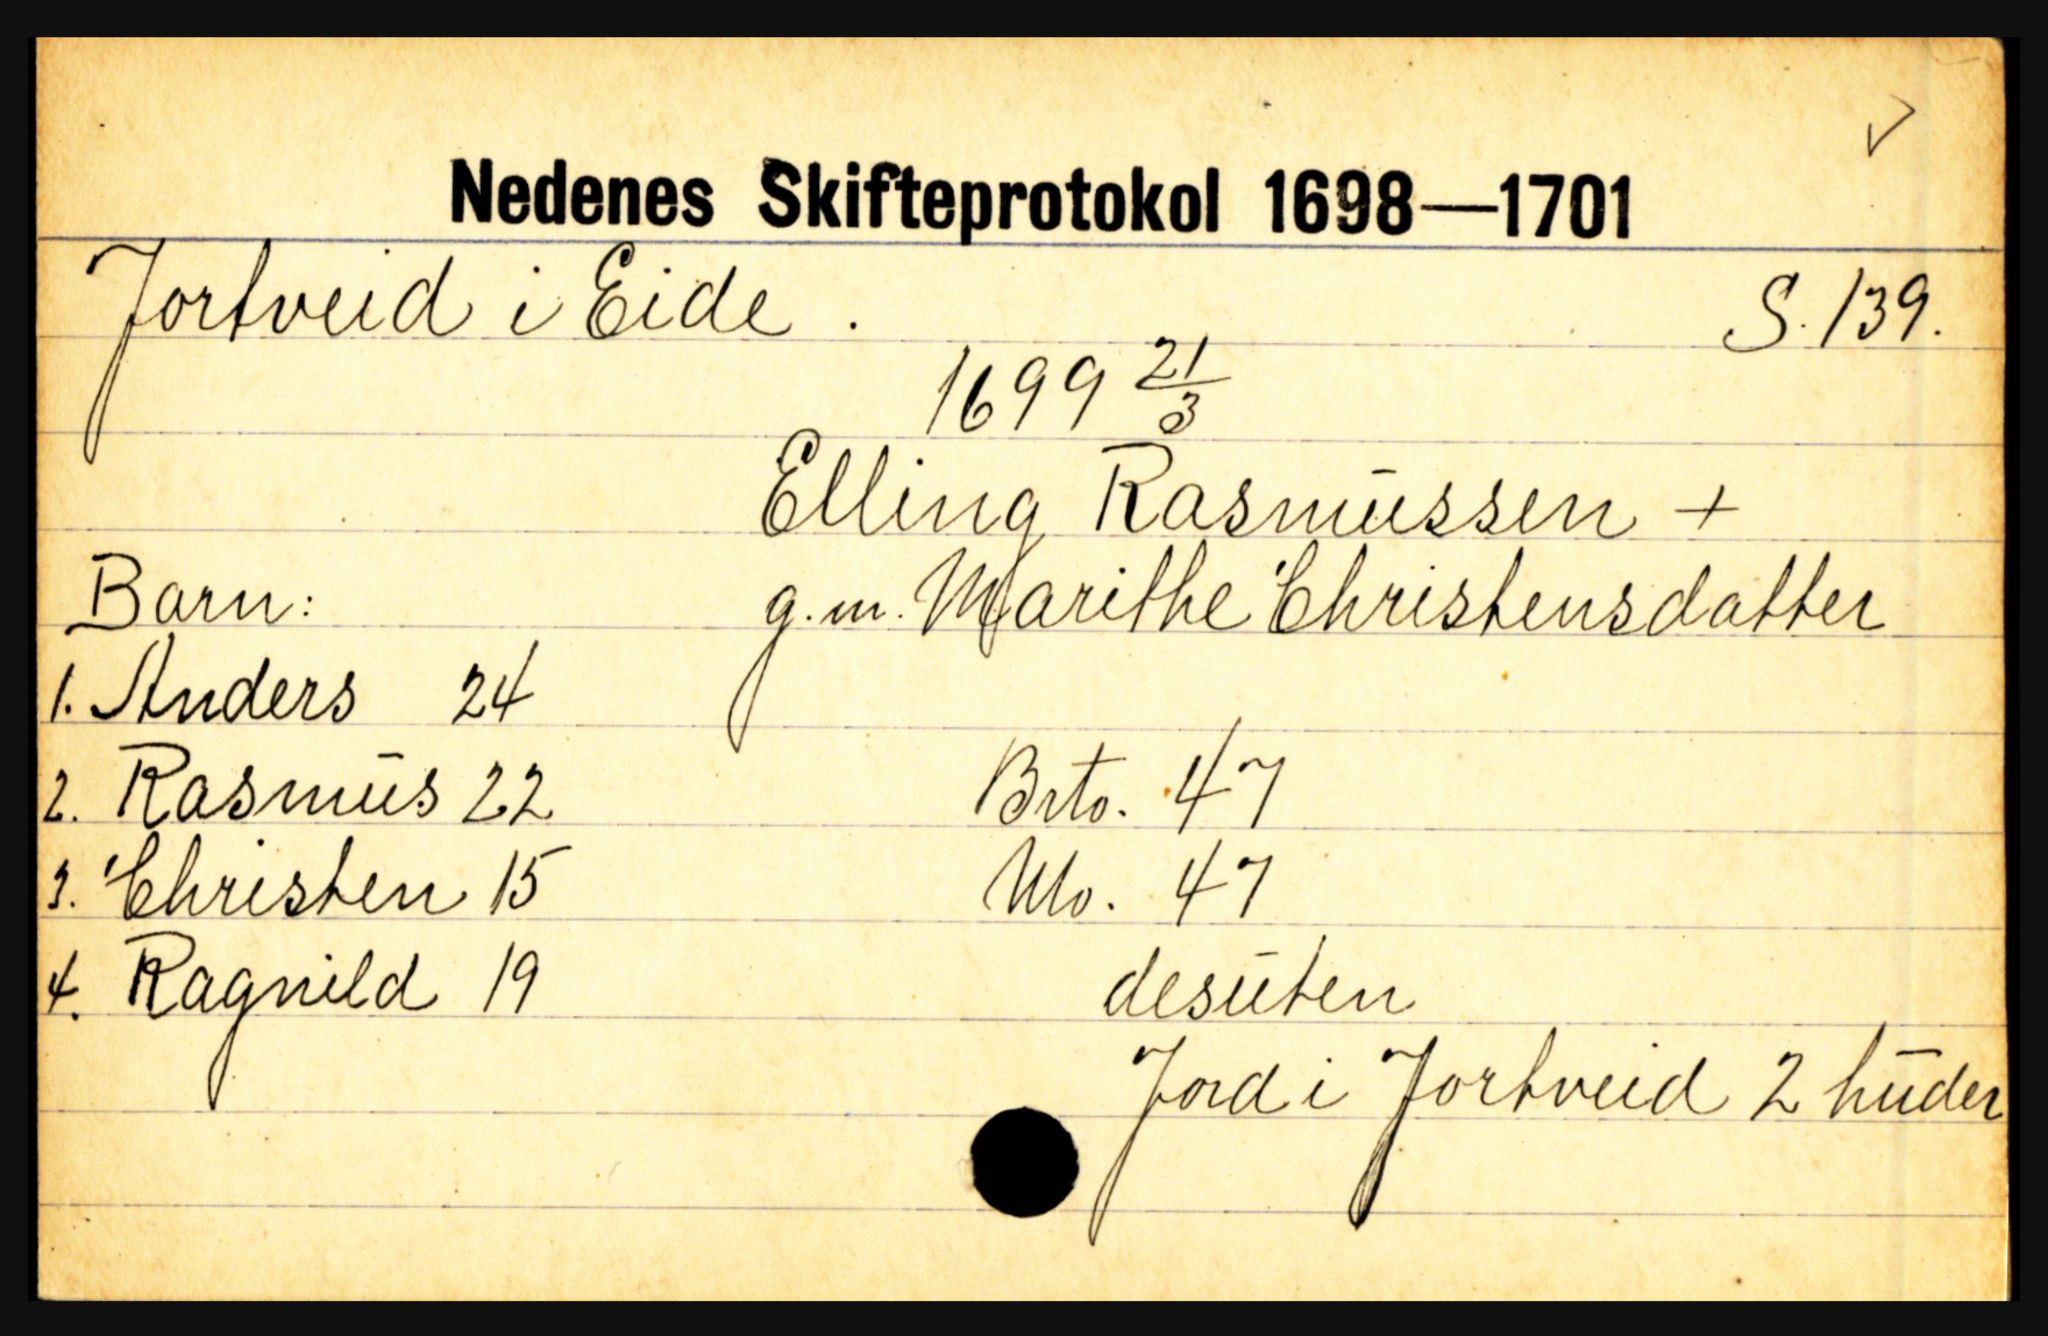 Nedenes Skifteprotokol 1698—1701
Jortveid i Eide . S. 139.
1699 21/3
Elling Rasmussen +
Barn: g. m. Marithe Christensdatter
1. Anders 24
2. Rasmus 22 Brto. 47
3. Christen 15 Nto. 47
4. Ragnild 19 desuten
Jord i Jortveid 2 huder